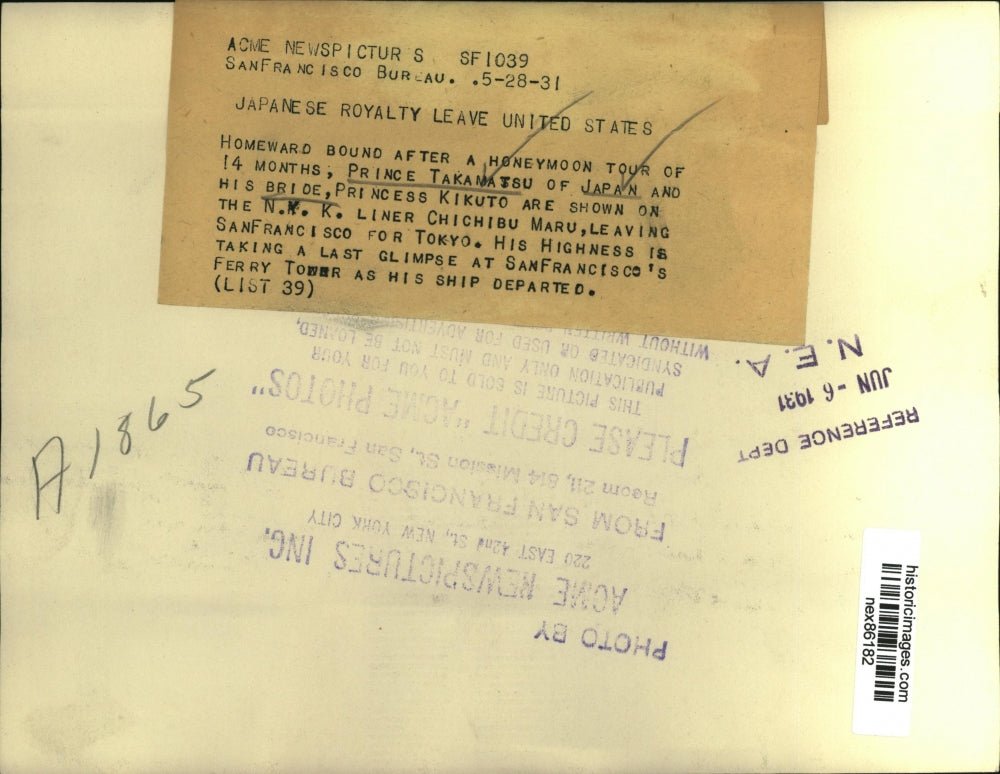 ACME NEWSPICTUR S SF1039
SANFRANCISCO BUREAU. .5-28-31
JAPANESE ROYALTY LEAVE UNITED STATES
HOMEWARD BOUND AFTER A HONEYMOON TOUR OF
14 MONTHS, PRINCE TAKAMATSU OF JAPAN AND
HIS BRIDE, PRINCESS KIKUTO ARE SHOWN ON
THE N.Y. K. LINER CHICHIBU MARU, LEAVING
SANFRANCISCO FOR TOKYO. HIS HIGHNESS IS
TAKING A LAST GLIMPSE AT SANFRANCISCO'S
FERRY TOWER AS HIS SHIP DEPARTED.
(LIST 39)
A1865
PHOTO BY
ACME NEWSPICTURES INC.
220 EAST 42nd St., NEW YORK CITY
FROM SAN FRANCISCO BUREAU
Room 211, 814 Mission St., San Francisco
PLEASE CREDIT "ACME PHOTOS"
THIS PICTURE IS SOLD TO YOU FOR YOUR
PUBLICATION ONLY AND MUST NOT BE LOANED,
SYNDICATED OR USED FOR
WITHOUT WRITTEN
REFERENCE DEPT
JUN - 6 1931
N. E. A.
historicimages.com
nex86182